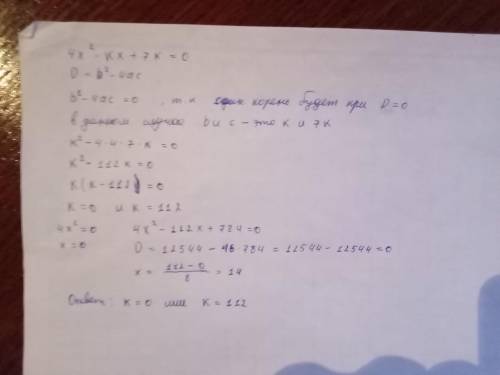 4x² - кx + 7к = 0
D = b² - 4ac
b² - 4ac = 0 , т.к один корень будет при D = 0
в данном случае b и c - это к и 7к
к² - 4·4·7·к = 0
к² - 112к = 0
к(к - 112) = 0
к = 0 и к = 112
4x² = 0 4x² - 112x + 784 = 0
x = 0 D = 12544 - 16·784 = 12544 - 12544 = 0
x = (112 - 0)/8 = 14
Ответ: к = 0 или к = 112